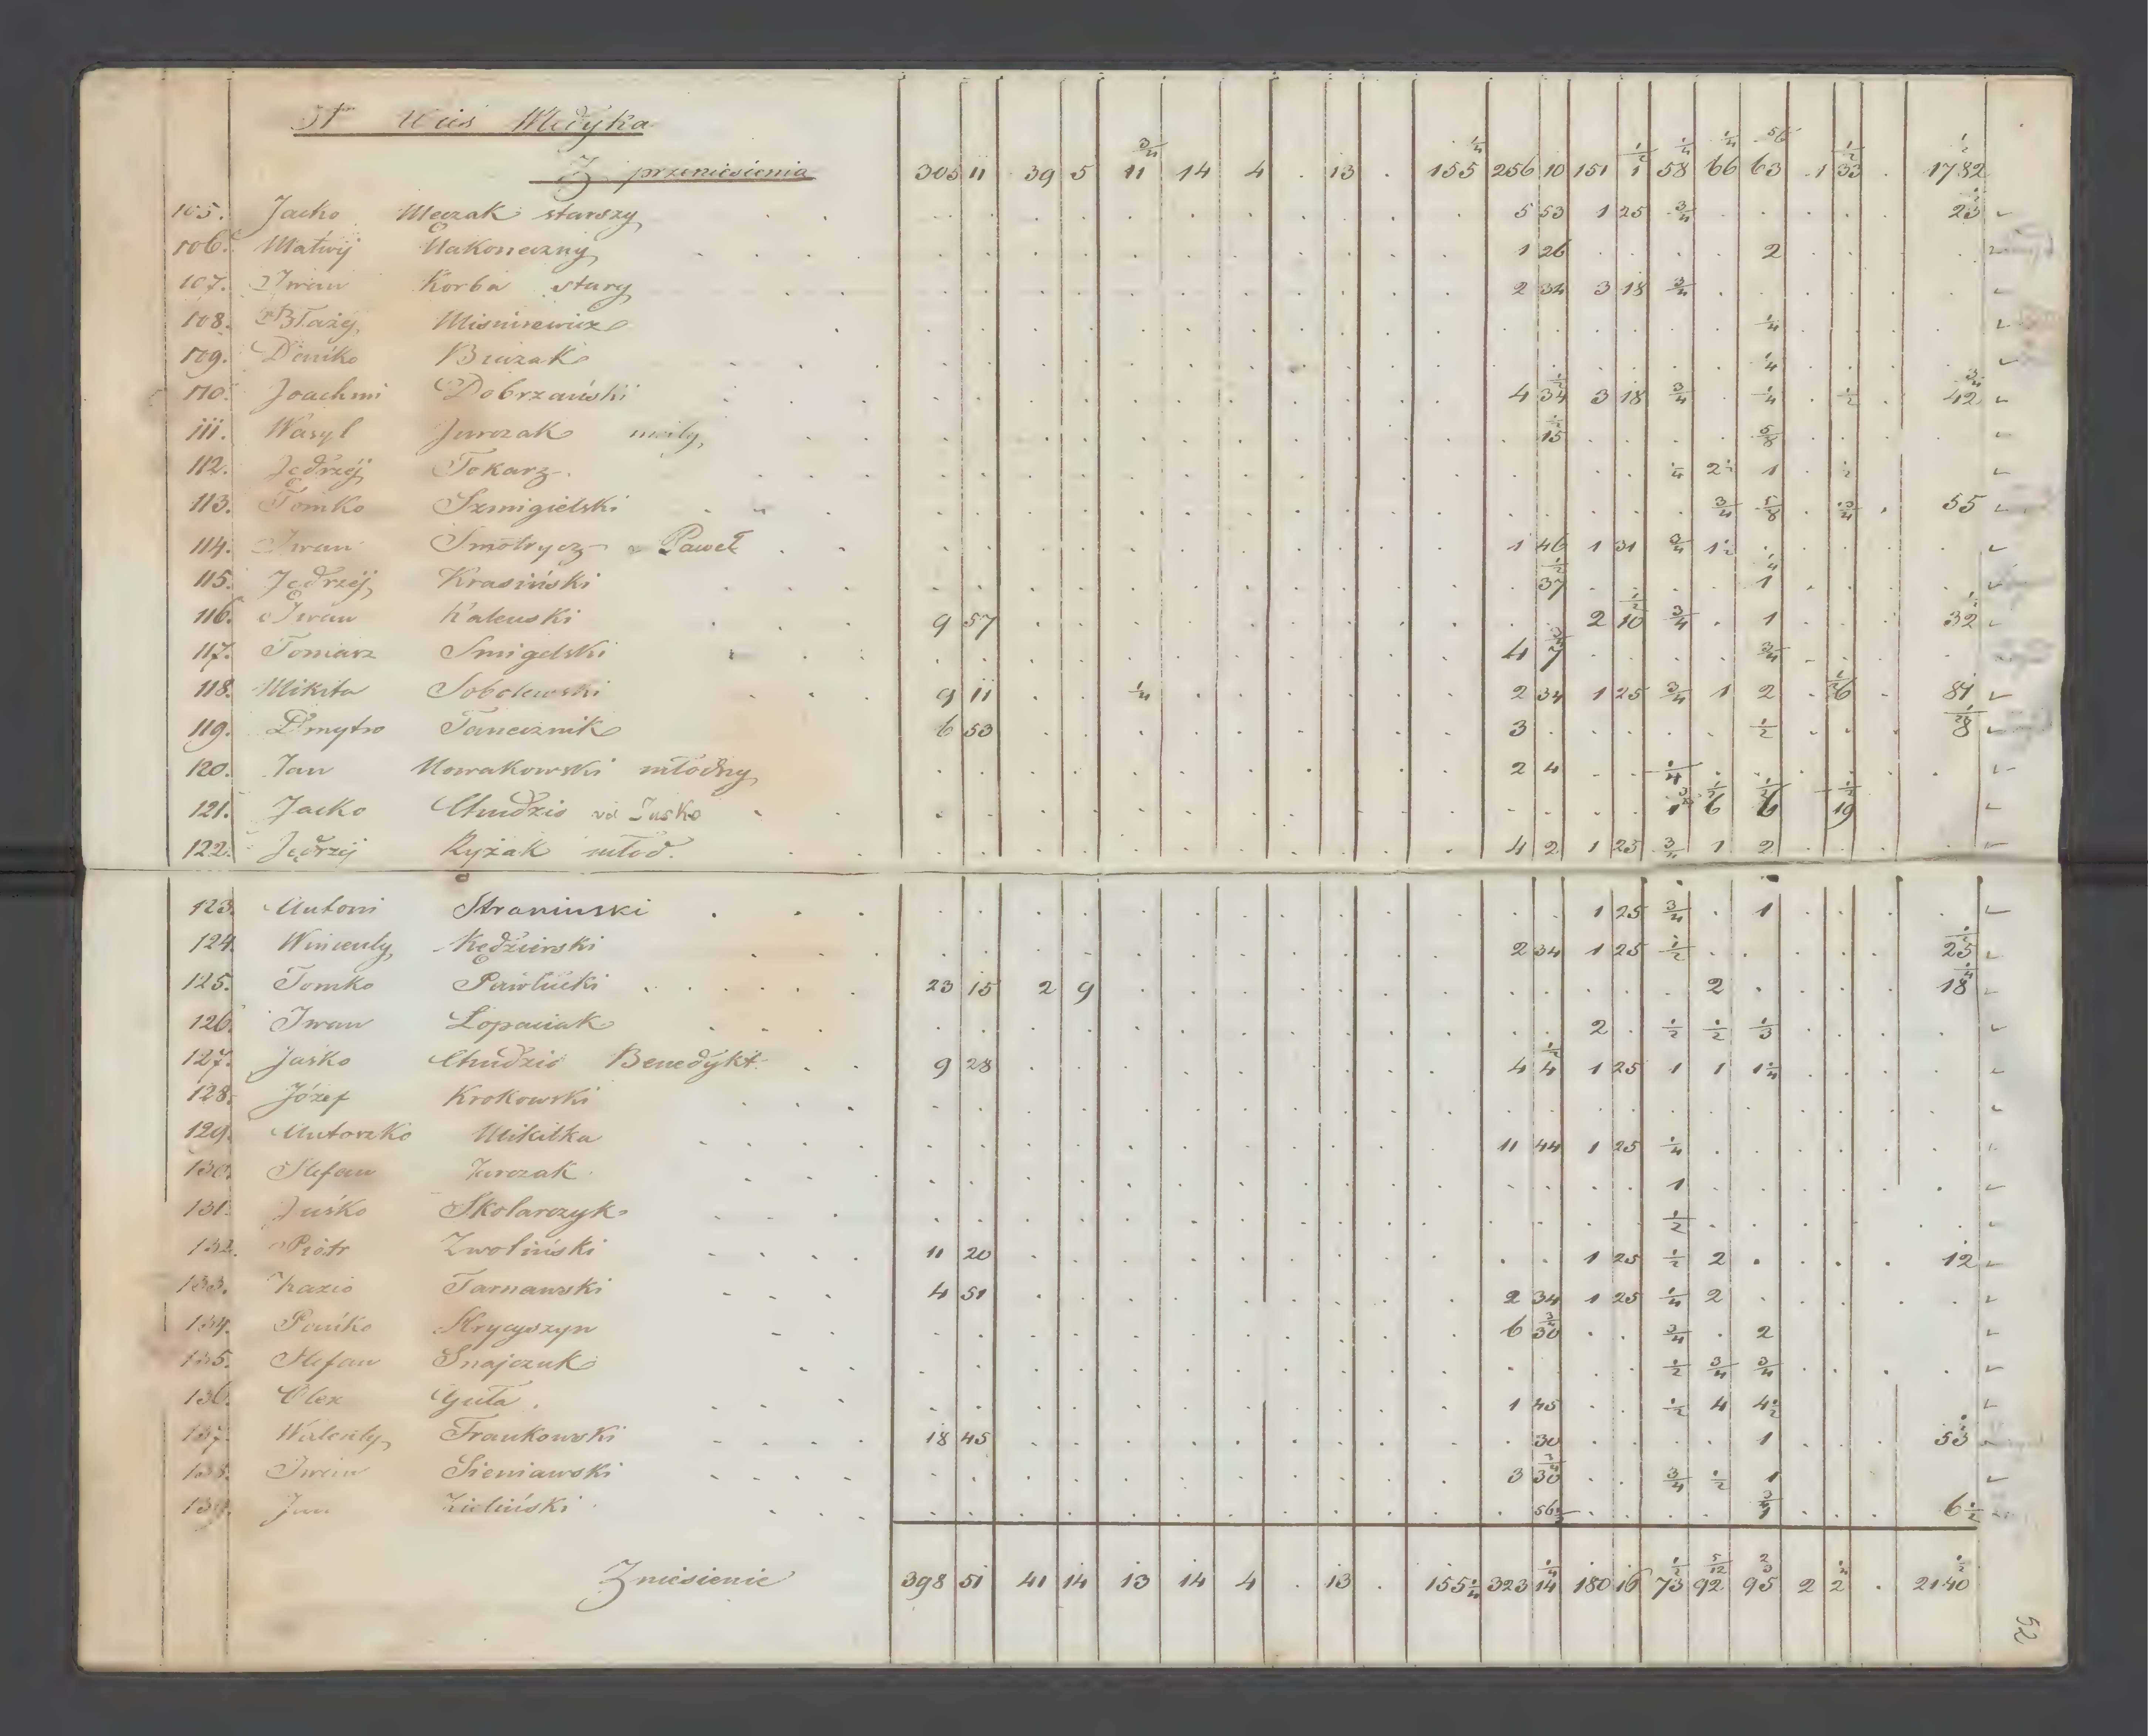 Wieś Medyka
Z przeniesienia 305 11 39 5 11 3/4 14 4 . 13 . 155 1/4 256 10 151 1 1/2 58 1/4 66 1/4 63 . 1 33 1/2 . 1782 1/2
105. Jacko starszy 5 53 1 25 3/4 23
106. Matwij Nakoneczny 1 26 2
107. Iwan Korba stary 2 34 3 18 3/4
108. Błażej 1/4
109. Dańko 1/4
110. Joachim Dobrzański 4 34 1/2 3 18 3/4 1/4 1/2 42 3/4
111. Wasyl Jurczak mały 15 1/2 5/8
112. Jędrzej Tokarz 1/4 2 1/2 1 1/2
113. Tomko Szmigielski 3/4 5/8 3/4 55
114. Iwan Smotrycz Paweł 1 46 1 31 3/4 1 1/2
115. Jędrzej Krasiński 37 1/2 1 1/4
116. Iwan 9 57 2 10 1/2 3/4 1 32
117. Tomasz Smigelski 4 7 3/4 3/4
118. Mikita Sobolewski 9 11 1/4 2 34 1 25 3/4 1 2 6 1/2 81
119. Dmytro Tanecznik 6 53 3 1/2 8 1/2
120. Jan Nowakowski młodszy 2 4 1/4
121. Jacko Chudzio Jusko 1 6 1/2 6 1/2 19 1/2
122. Jędrzej Ryżak młod. 4 2 1 25 3/4 1 2
123. Antoni Straminski 1 25 3/4 1
124. Wincenty Kędzierski 2 34 1 25 1/2 25 1/2
125. Tomko Pawlucki 23 15 2 9 2 18 1/4
126. Iwan Łopaciak 2 1/2 1/2 1/3
127. Jaśko Chudzio Benedykt 9 28 4 4 1/2 1 25 1 1 1 1/4
128. Józef Krokowski
129. Antoszko Mikitka 11 44 1 25 1/4
130. Stefan Jurczak 1
131. Juśko Skolarczyk 1/2
132. Piotr Zwoliński 11 20 1 25 1/2 2 12
133. Tarnawski 4 51 2 34 1 25 1/4 2
134. Pańko 6 30 3/4 3/4 2
135. Stefan Snajczuk 1/2 3/4 3/4
136. Olex Guła 1 45 1/2 4 4 1/2
137. Walenty Frankowski 18 45 30 1 53
138. Iwan Sieniawski 3 30 3/4 3/4 1/2 1
139. Jan Zieliński 56 1/2 1 6 1/2
Zniesienie 398 51 41 14 13 14 4 . 13 . 155 1/4 323 14 1/4 180 16 73 1/2 92 5/12 95 2/3 2 2 1/4 . 2140 1/2
52